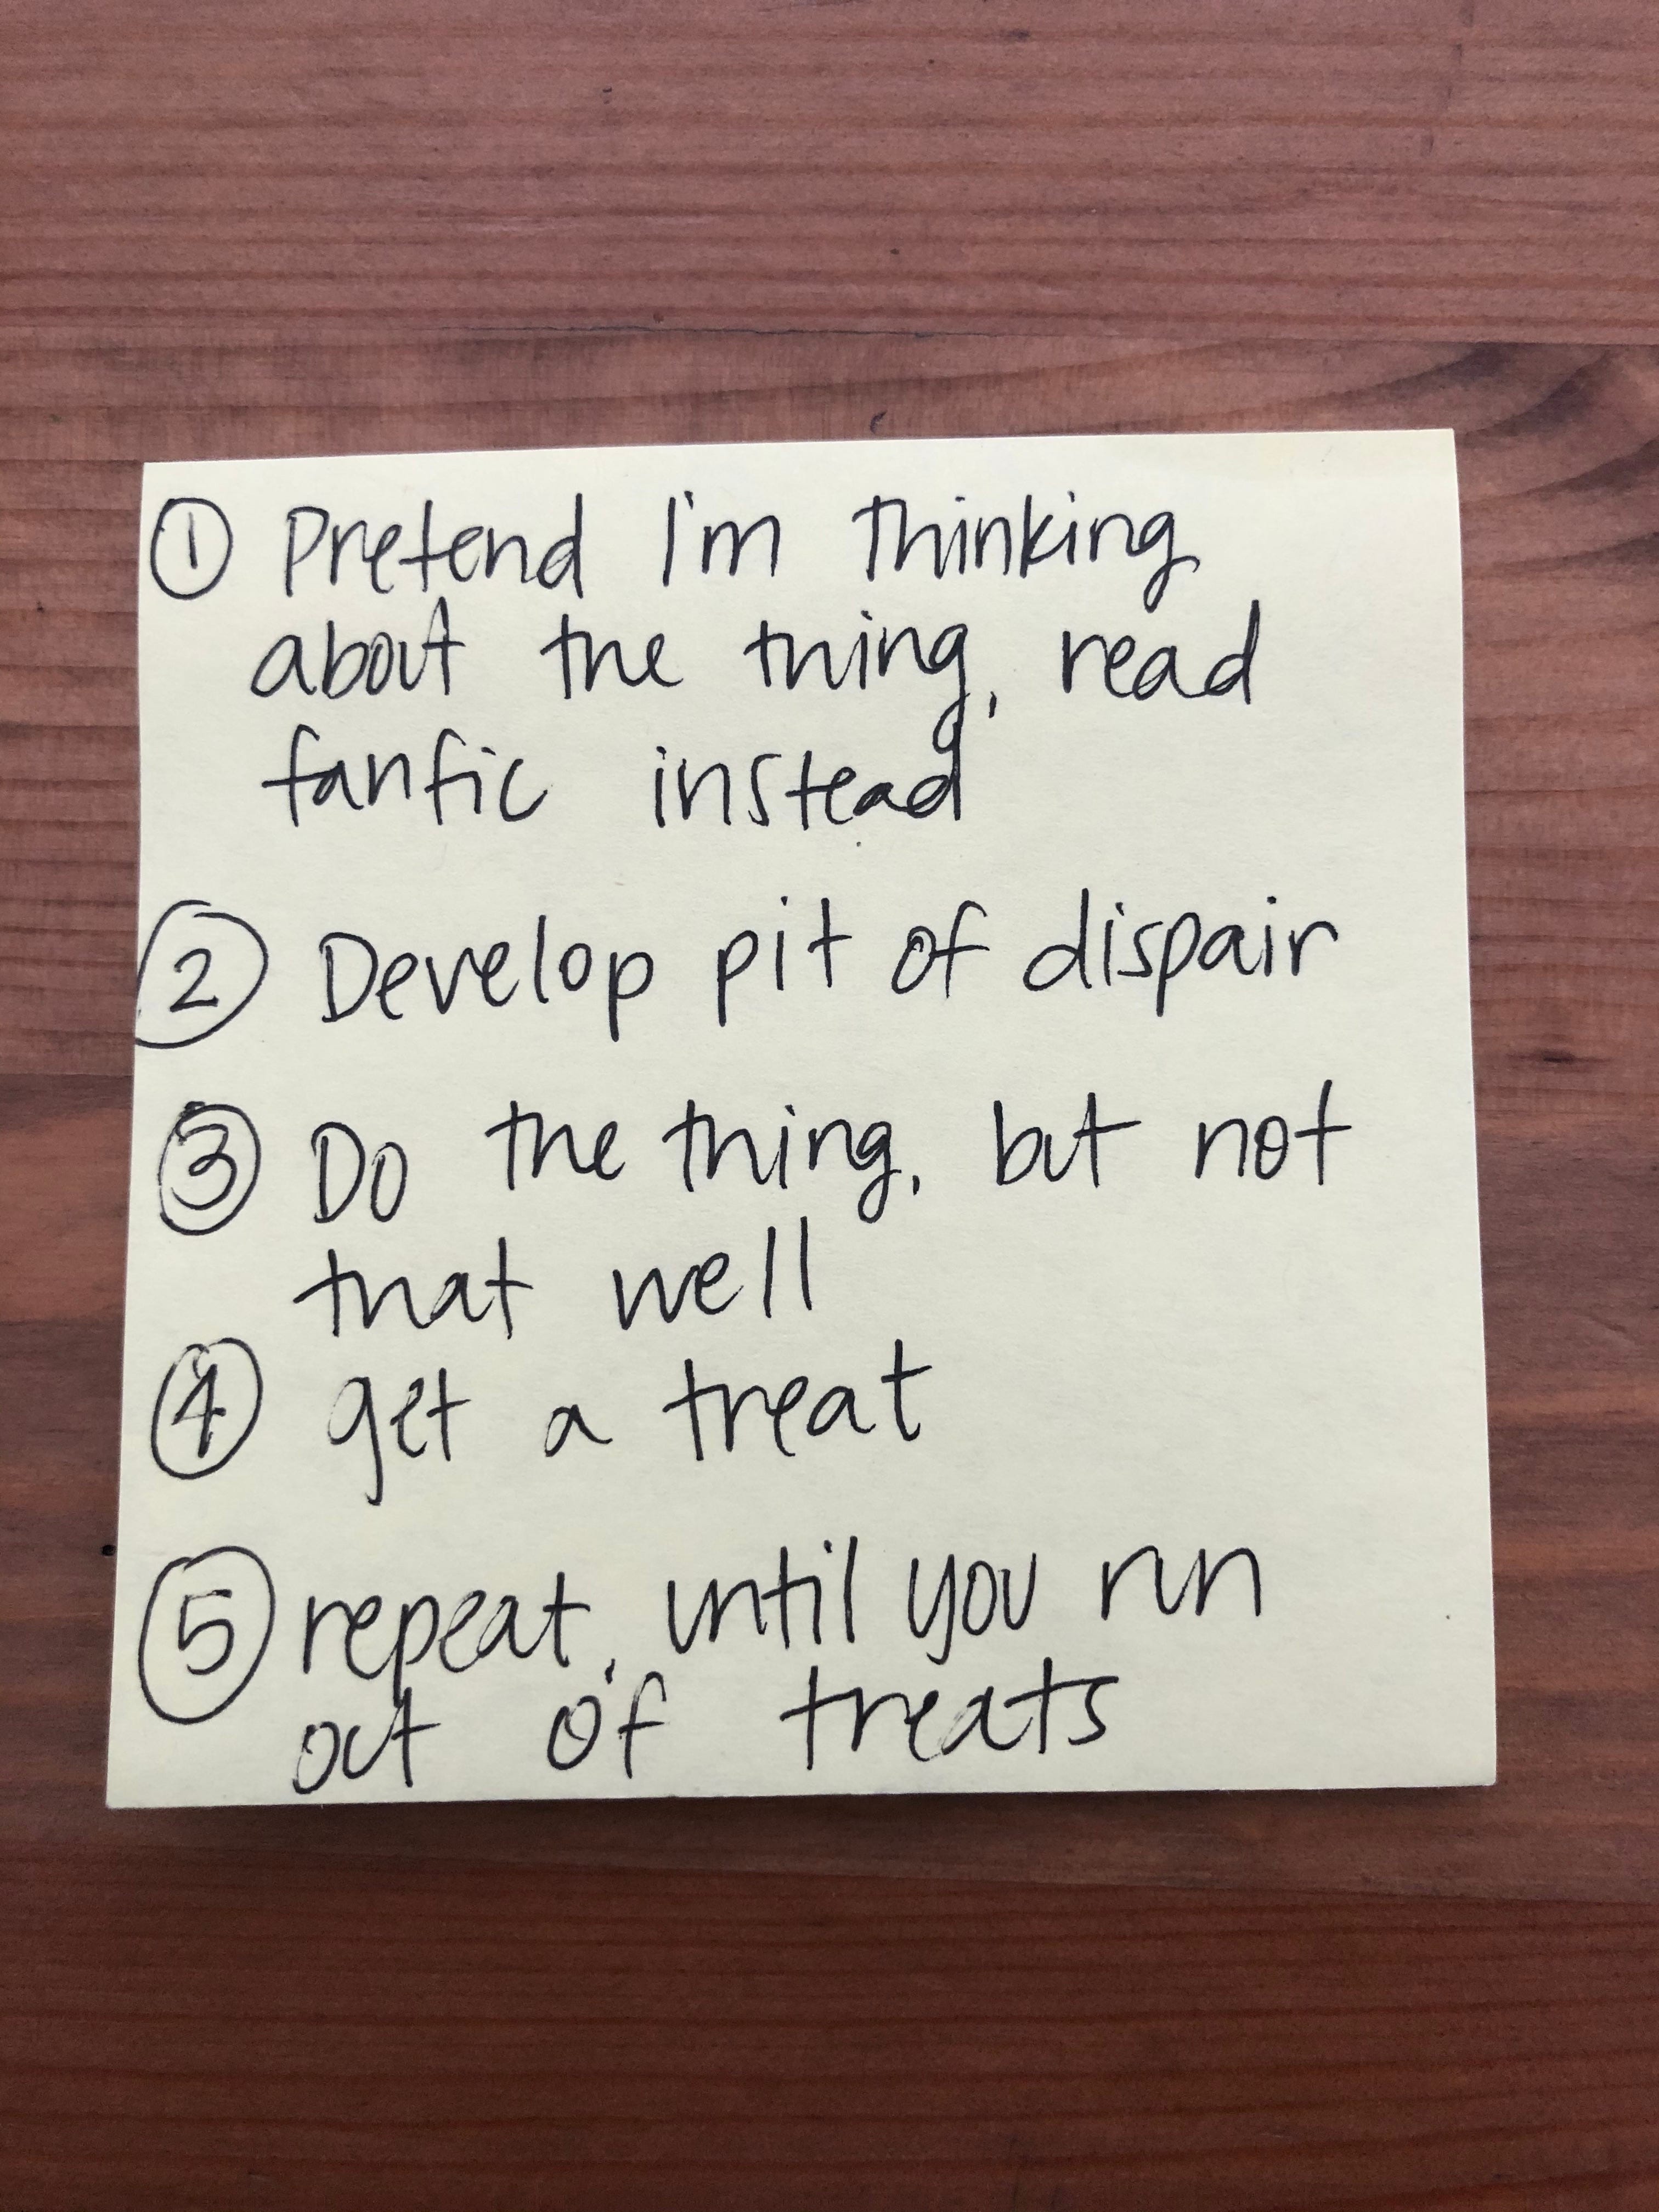 ① Pretend I'm thinking
about the thing, read
fanfic instead
② Develop pit of dispair
③ Do the thing, but not
that well
④ get a treat
⑤ repeat, until you run
out of treats